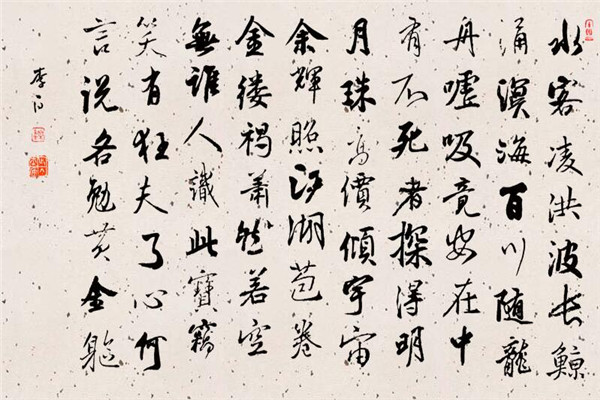 水客凌洪波长鲸
涌溟海百川随龍
舟嘘吸竟安在中
有不死者探得明
月珠高價傾宇宙
余輝照江湖苞卷
金缕褐蕭然若空
無誰人識此寶竊
笑有狂夫了心何
言说各勉黄金躯
李白